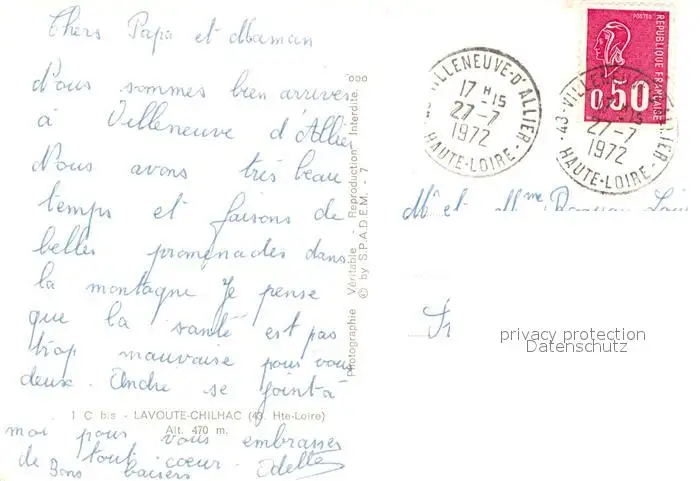 Chers Papa et Maman
Nous sommes bien arrivés
à Villeneuve d'Allier
Nous avons très beau
temps et faisons de
belles promenades dans
la montagne Je pense
que la santé est pas
trop mauvaise pour vous
deux. Andre se joint à
moi pour vous embrasser
de tout cœur.
Bons baisers Odette
1 C bis - LAVOUTE-CHILHAC (43. Hte-Loire)
Alt. 470 m.
Photographie Véritable - Reproduction Interdite. 000
© by S.P.A.D.E.M. - 7
43 VILLENEUVE-D'ALLIER
17 H 15
27-7
1972
HAUTE-LOIRE
43 VILLENEUVE-D'ALLIER
17 H 15
27-7
1972
HAUTE-LOIRE
POSTES
RÉPUBLIQUE FRANÇAISE
0,50
Mr et Mme
privacy protection
Datenschutz